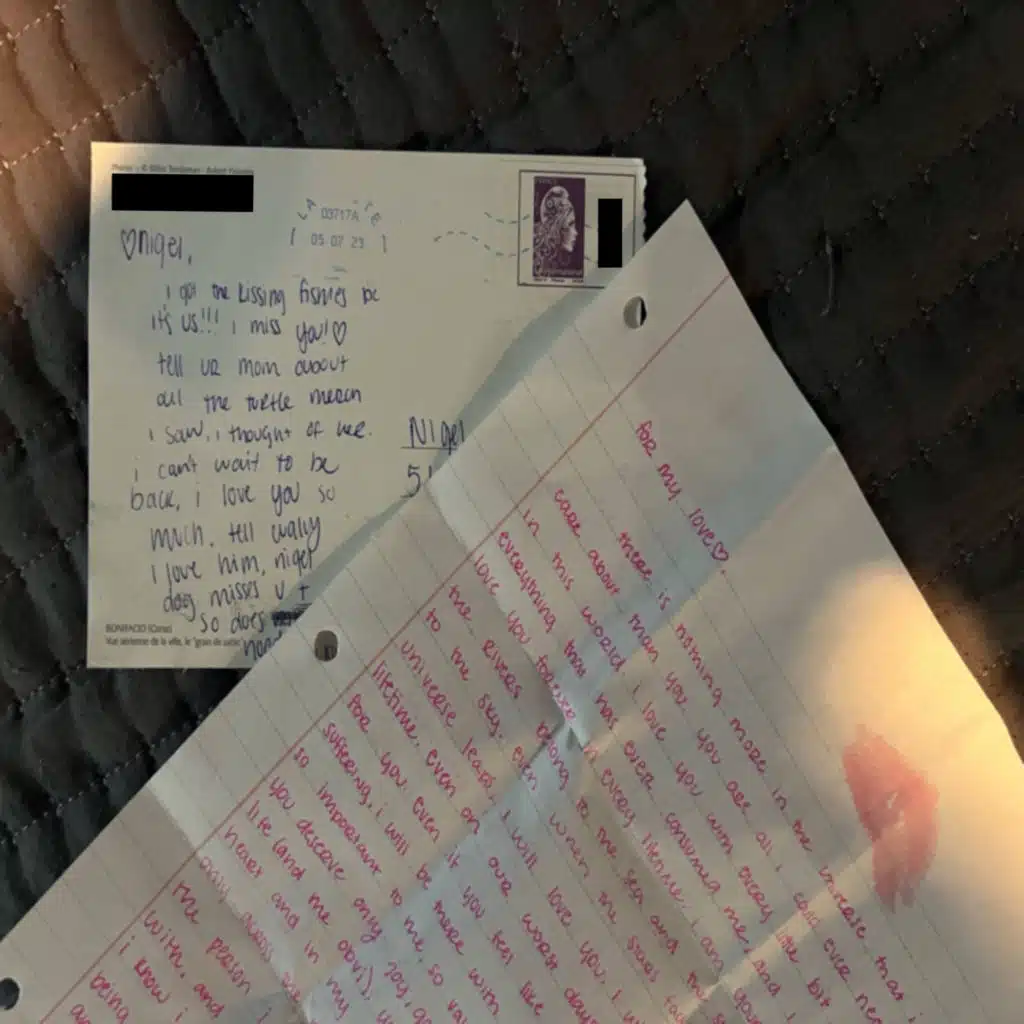 03717A
05 07 23
♡Nigel,
i got the kissing fishies bc
it's us!!! i miss you!♡
tell ur mom about
all the turtle merch
i saw, i thought of her.
i can't wait to be
back, i love you so
much. tell wally
I love him, nigel
dog misses u +
so does
BONIFACIO (Corse)
Vue aérienne de la ville, le "grain de sable"
Nigel
for my love♡,
there is nothing more in the universe that i
care about than you. you are all i could ever
in this world. i love you with every little bit
everything that has ever consumed me, and i
love you forever & every lifetime. i am
the rivers belong to the sea and the
to the sky. even when the stars
universe leaves, i will love you. i
lifetime. even on our worst days
for you. even if you feel like
suffering, i will be there with
so important to me, so
you deserve any joy,
life (and me obvi),
heart and in my
only
the person
with, and
i know i
being